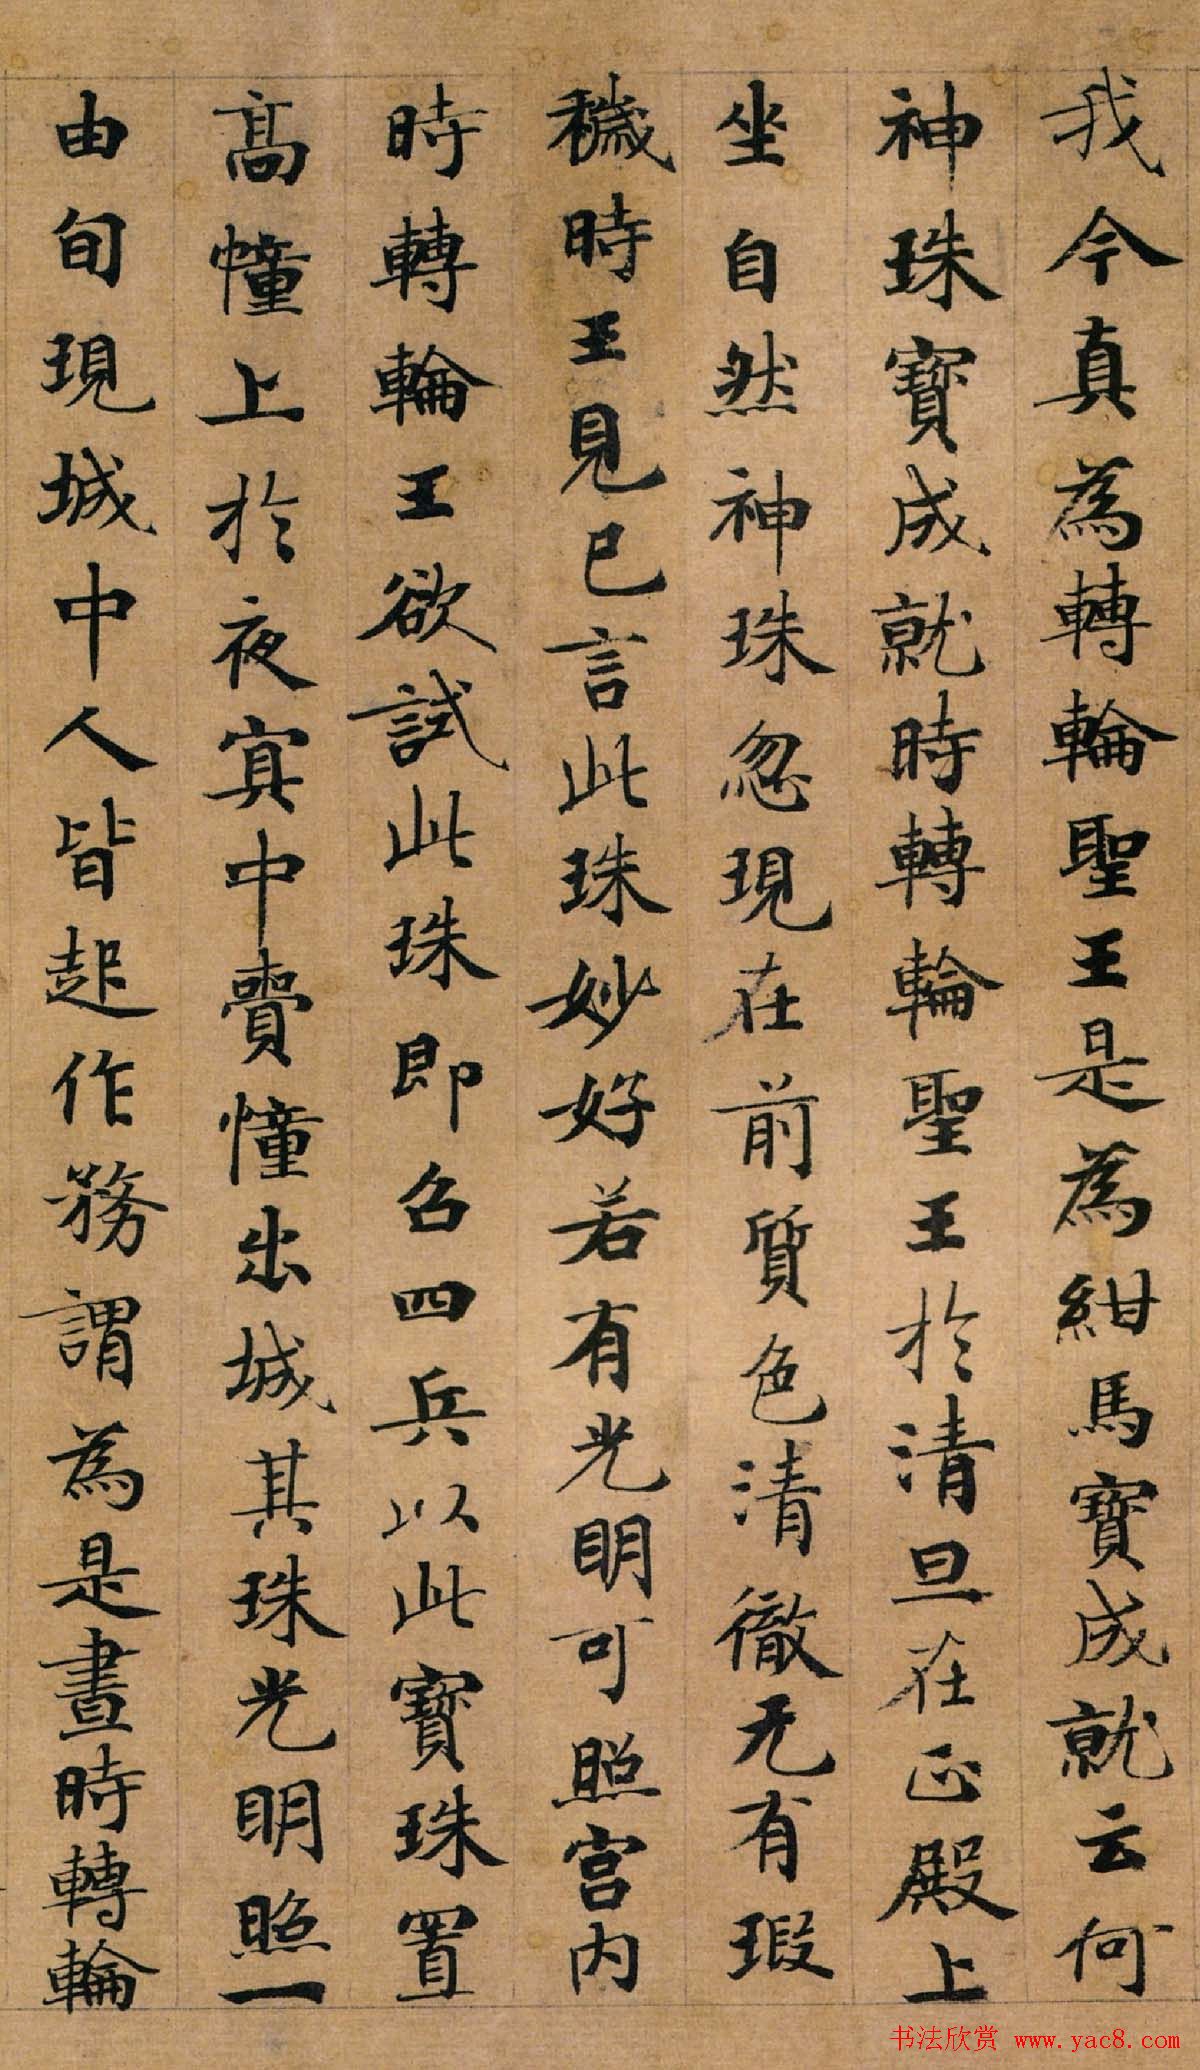 我今真為轉輪聖王是為紺馬寶成就云何
神珠寶成就時轉輪聖王於清旦在正殿上
坐自然神珠忽現在前質色清徹无有瑕
穢時王見已言此珠妙好若有光明可照宮內
時轉輪王欲試此珠即召四兵以此寶珠置
高幢上於夜冥中賷幢出城其珠光明照一
由旬現城中人皆起作務謂為是晝時轉輪
书法欣赏 www.yac8.com